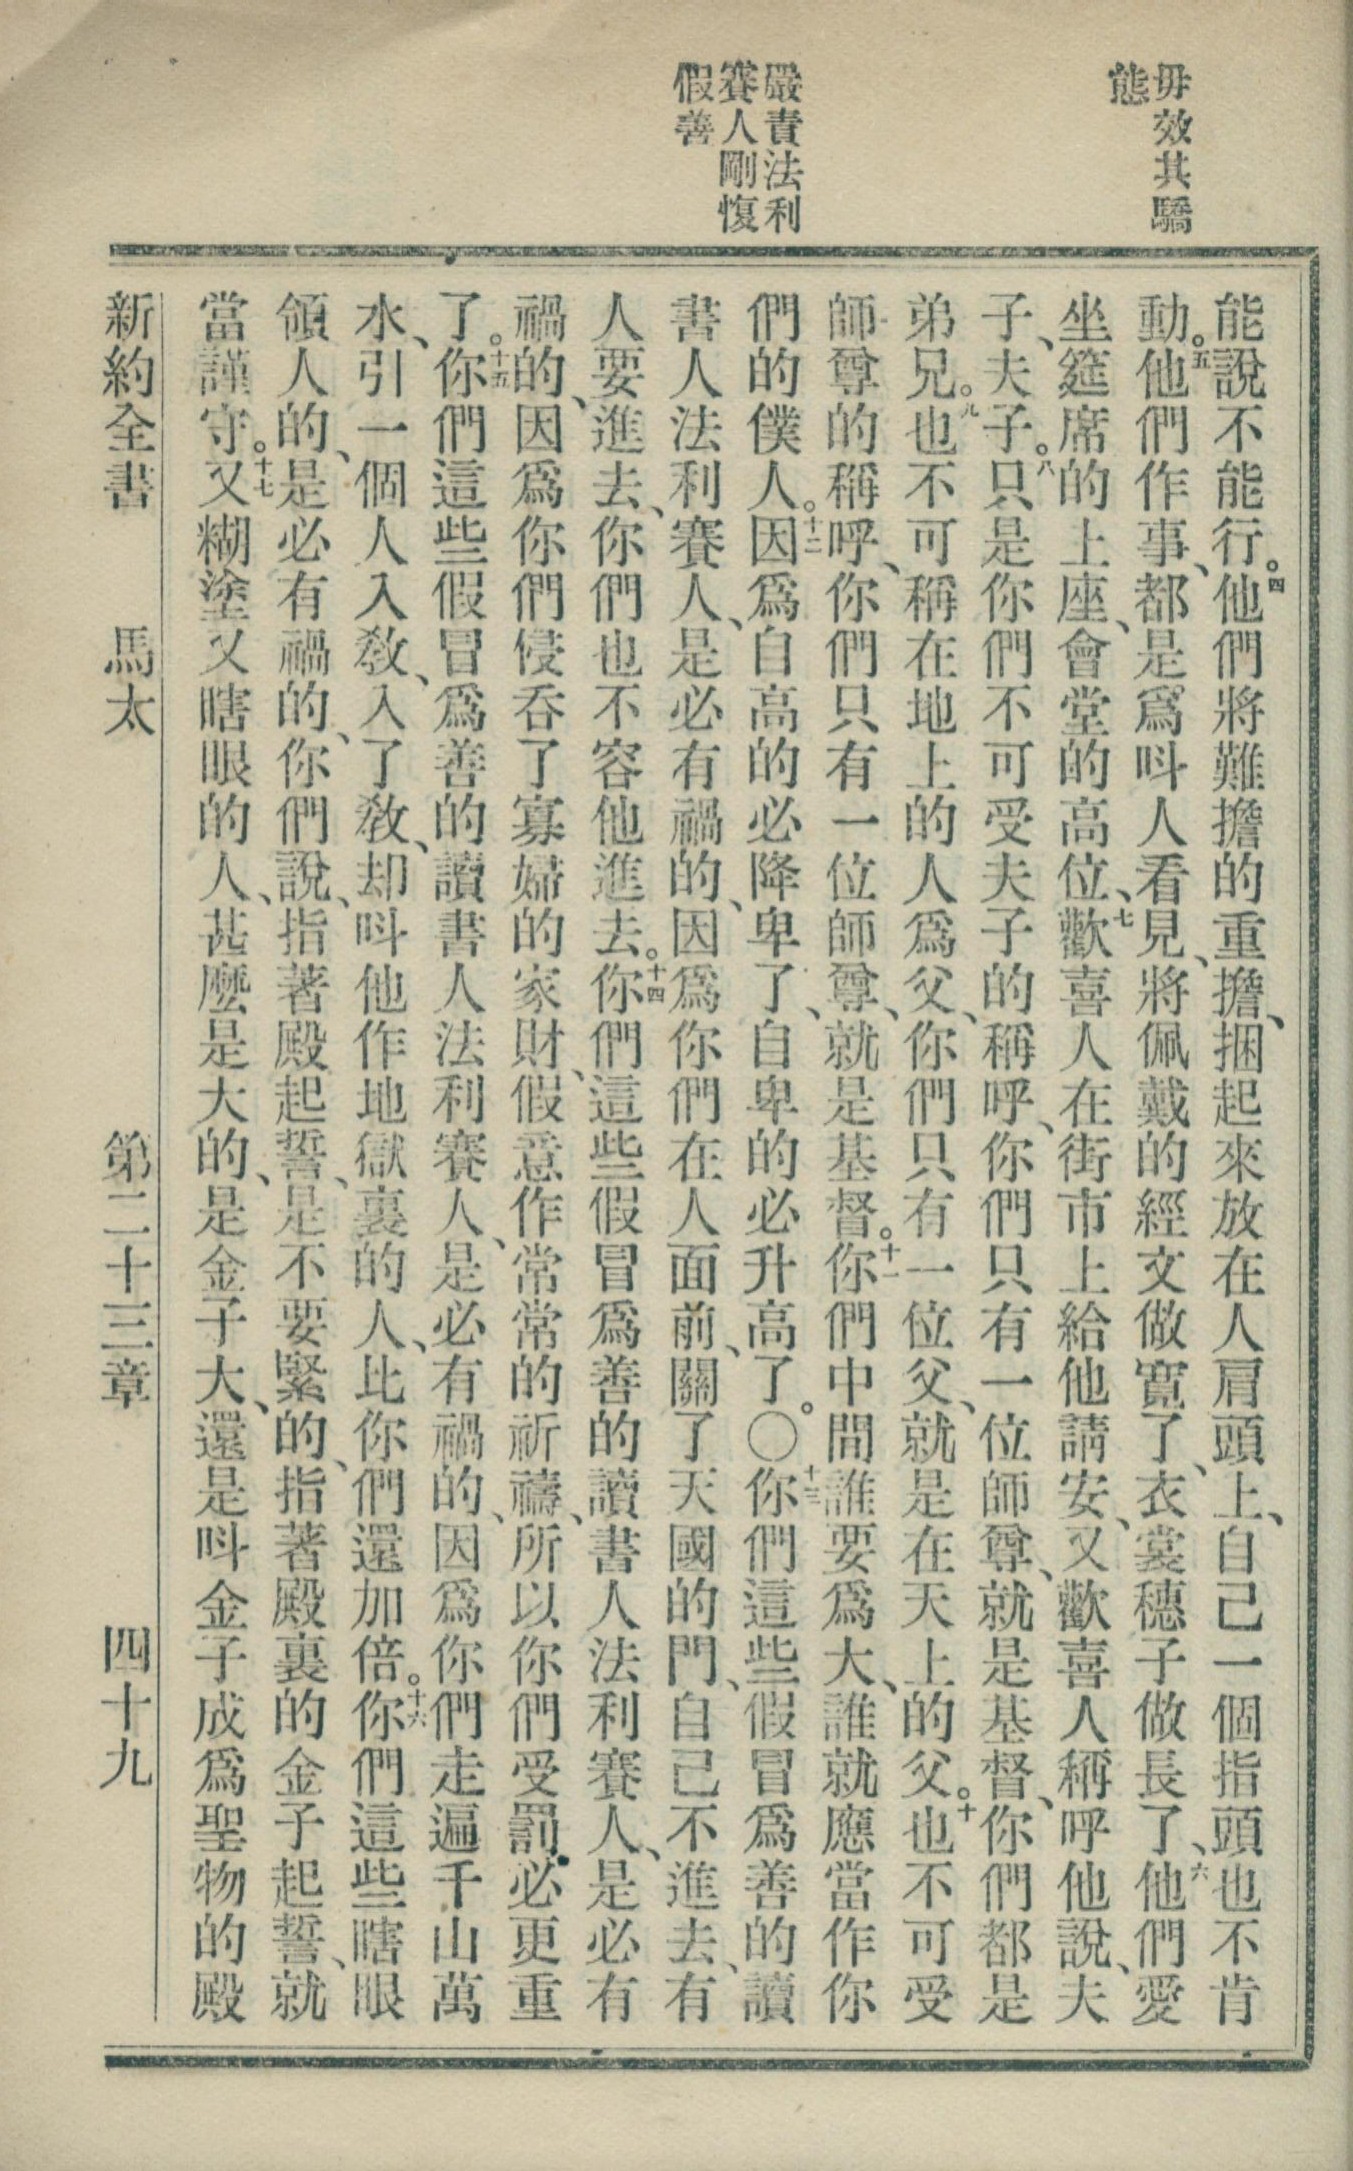 毋效其驕
態
嚴責法利
賽人剛愎
假善
能說不能行。四他們將難擔的重擔、捆起來放在人肩頭上、自己一個指頭也不肯
動。五他們作事、都是爲呌人看見、將佩戴的經文做寬了、衣裳穗子做長了、六他們愛
坐筵席的上座、會堂的高位、七歡喜人在街市上給他請安、又歡喜人稱呼他說、夫
子、夫子。八只是你們不可受夫子的稱呼、你們只有一位師尊、就是基督、你們都是
弟兄。九也不可稱在地上的人爲父、你們只有一位父、就是在天上的父。十也不可受
師尊的稱呼、你們只有一位師尊、就是基督。十一你們中間誰要爲大、誰就應當作你
們的僕人。十二因爲自高的必降卑了、自卑的必升高了。〇十三你們這些假冒爲善的讀
書人法利賽人、是必有禍的、因爲你們在人面前、關了天國的門、自己不進去、有
人要進去、你們也不容他進去。十四你們這些假冒爲善的讀書人法利賽人、是必有
禍的、因爲你們侵吞了寡婦的家財、假意作常常的祈禱、所以你們受罰必更重
了。十五你們這些假冒爲善的讀書人法利賽人、是必有禍的、因爲你們走遍千山萬
水、引一個人入敎、入了敎、却呌他作地獄裏的人、比你們還加倍。十六你們這些瞎眼
領人的、是必有禍的、你們說、指著殿起誓、是不要緊的、指著殿裏的金子起誓、就
當謹守。十七又糊塗又瞎眼的人、甚麼是大的、是金子大、還是呌金子成爲聖物的殿
新約全書 馬太 第二十三章 四十九